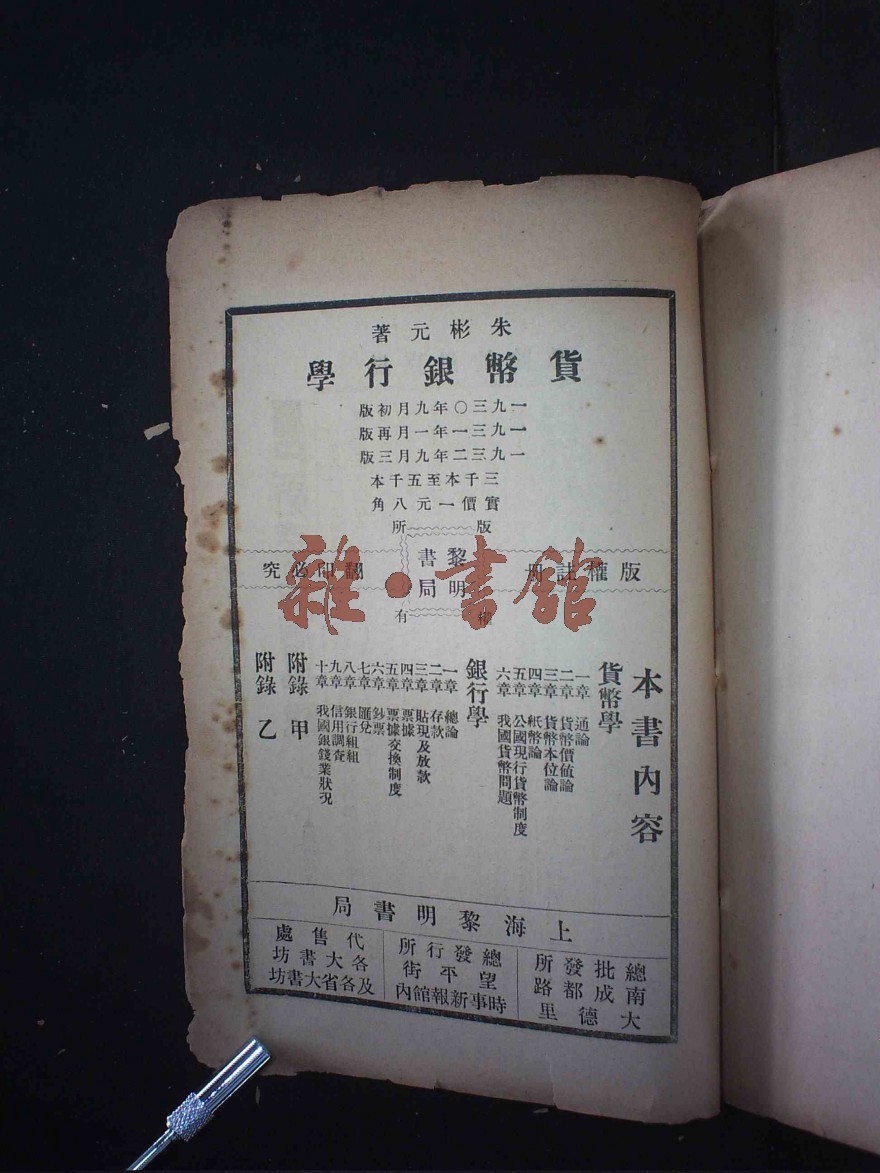 朱彬元著
貨幣銀行學
一九三〇年九月初版
一九三一年一月再版
一九三二年九月三版
三千本至五千本
實價一元八角
版權所有
黎明書局
版權註冊
翻印必究
雜·書館
本書內容
貨幣學
一章 通論
二章 貨幣價値論
三章 貨幣本位論
四章 紙幣論
五章 公國現行貨幣制度
六章 我國貨幣問題
銀行學
一章 總論
二章 存款
三章 貼現及放款
四章 票據
五章 票據交換制度
六章 鈔票
七章 匯兌
八章 銀行組組
九章 信用調查
十章 我國銀錢業狀況
附錄 甲
附錄 乙
上海黎明書局
總批發所
南成都路
大德里
總發行所
望平街
時事新報館內
代售處
各大書坊
及各省大書坊